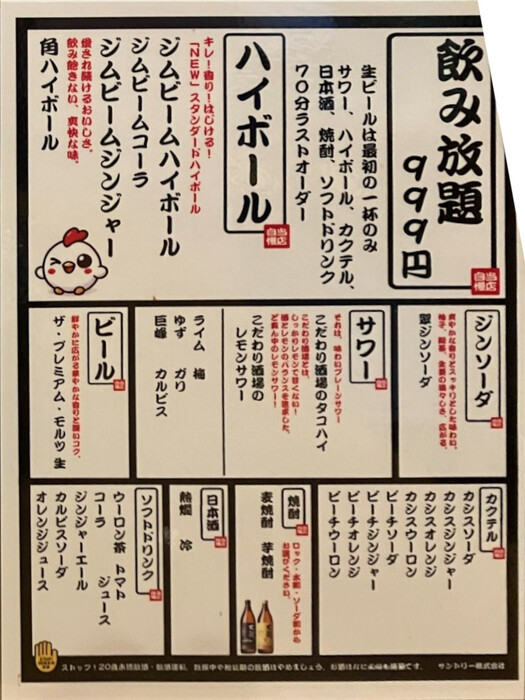 飲み放題
999円
当店自慢
生ビールは最初の一杯のみ
サワー、ハイボール、カクテル、
日本酒、焼酎、ソフトドリンク
70分ラストオーダー
ハイボール
当店自慢
キレ!香り!はじける!
「NEW」スタンダードハイボール
ジムビームハイボール
ジムビームコーラ
ジムビームジンジャー
愛され続けるおいしさ。
飲み飽きない、爽快な味。
角ハイボール
ジンソーダ
爽やかな香りとスッキリとした味わい。
翠ジンソーダ
サワー
それは、味わいプレーンサワー
こだわり酒場のタコハイ
こだわり酒場とは、
しっかりレモンで甘くない!
酒とレモンのバランスを追求した、
ど真ん中のレモンサワー!
こだわり酒場の
レモンサワー
ライム 梅
ゆず ガリ
巨峰 カルピス
ビール
鮮やかに広がる華やかな香りと深いコク。
ザ・プレミアム・モルツ 生
カクテル
カシスソーダ
カシスジンジャー
カシスオレンジ
カシスウーロン
ピーチソーダ
ピーチジンジャー
ピーチオレンジ
ピーチウーロン
焼酎
ロック・水割・ソーダ割から
お選びください。
麦焼酎 芋焼酎
日本酒
熱燗 冷
ソフトドリンク
ウーロン茶 トマトジュース
コーラ
ジンジャーエール
カルピスソーダ
オレンジジュース
ストップ!20歳未満飲酒・飲酒運転。妊娠中や授乳期の飲酒はやめましょう。お酒はなによりも適量です。
サントリー株式会社